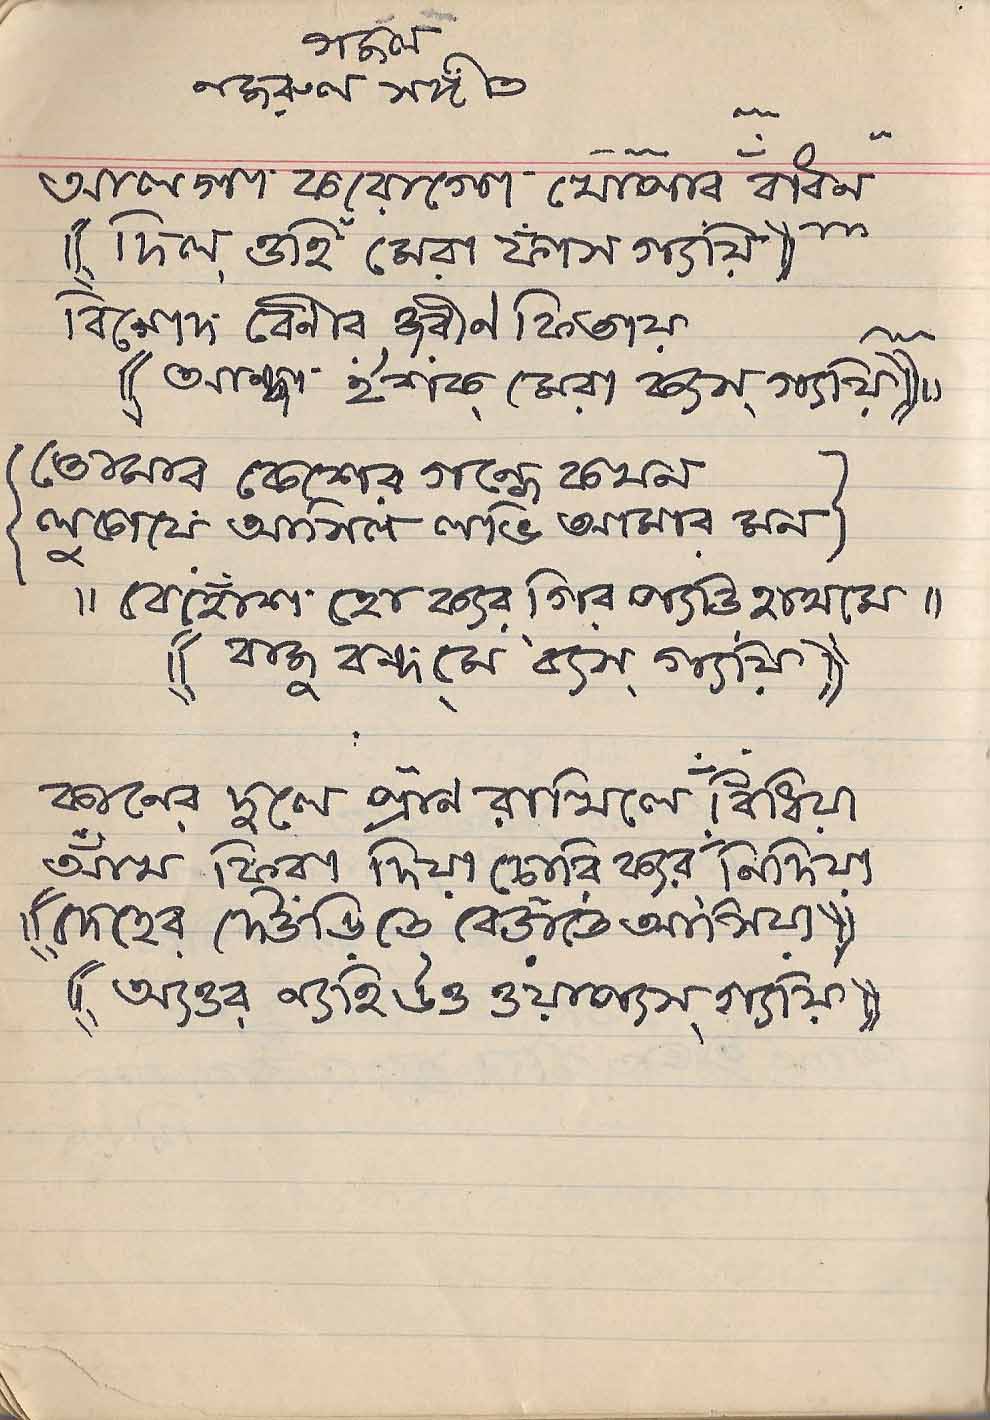 গজল
নজরুল সঙ্গীত
আলগা করোগো খোঁপার বাঁধন
দিল্ ওহিঁ মেরা ফাঁস গ্যয়ি
বিনোদ বেনীর জরীণ ফিতায়
আন্ধা ইঁশক্ মেরা কস্ গ্যয়ি॥
তোমার কেশের গন্ধে কখন
লুটায়ে আসিল লাভি আমার মন
॥ বেহোঁশ হো কর্ গির প্যড়ি হাথমে ॥
বাজু বন্দ্ মে ব্যস্ গ্যয়ি
কানের দুলে প্রাণ রাখিলে বিঁধিয়া
আঁখ ফিরা দিয়া চোরি কর্ নিঁদিয়া
দেহের দেউড়িতে বেড়াতে আসিয়া
অওর ন্যহি উও ওয়াপ্যস্ গ্যয়ি